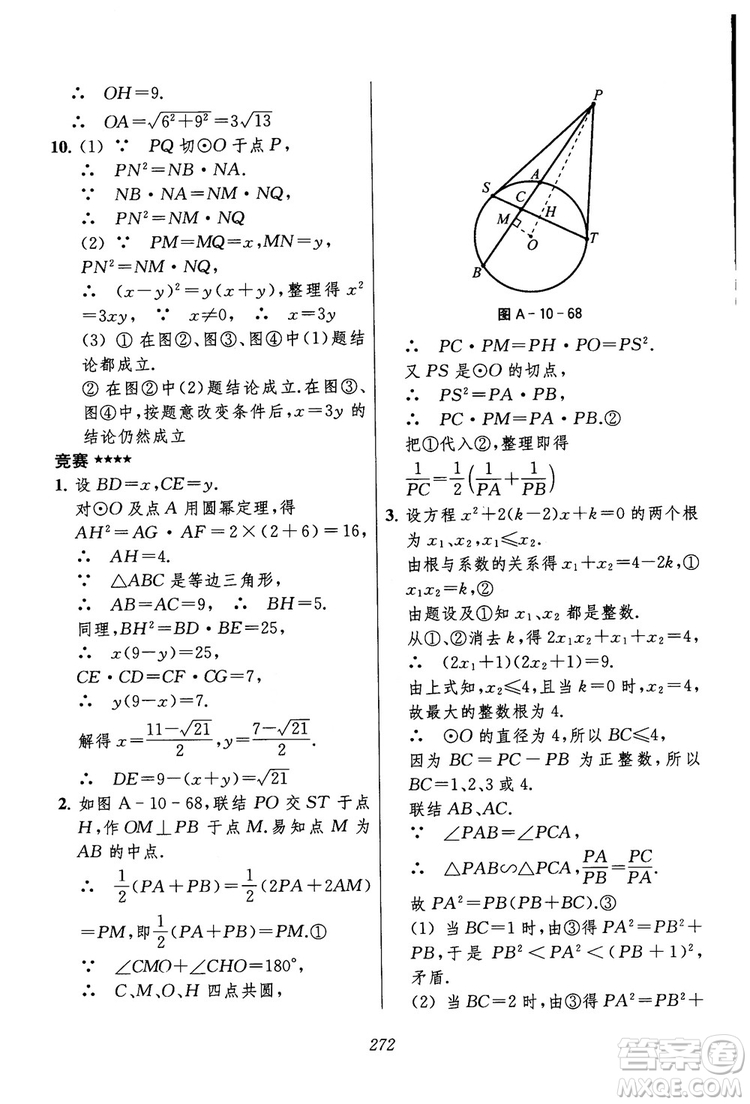 ∴ OH=9.
∴ OA=√(6²+9²)=3√13
10. (1) ∵ PQ切⊙O于点P,
∴ PN²=NB·NA.
∵ NB·NA=NM·NQ,
∴ PN²=NM·NQ
(2) ∵ PM=MQ=x,MN=y,
∴ PN²=NM·NQ,
∴ (x-y)²=y(x+y),整理得x²
=3xy, ∵ x≠0, ∴ x=3y
(3) ① 在图②、图③、图④中(1)题结
论都成立.
② 在图②中(2)题结论成立.在图③、
图④中,按题意改变条件后,x=3y的
结论仍然成立
竞赛 ★★★★
1. 设BD=x,CE=y.
对⊙O及点A用圆幂定理,得
AH²=AG·AF=2×(2+6)=16,
∴ AH=4.
∵ △ABC是等边三角形,
∴ AB=AC=9, ∴ BH=5.
同理,BH²=BD·BE=25,
∴ x(9-y)=25,
CE·CD=CF·CG=7,
∴ y(9-x)=7.
解得x=(11-√21)/2,y=(7-√21)/2.
∴ DE=9-(x+y)=√21
2. 如图A-10-68,联结PO交ST于点
H,作OM⊥PB于点M.易知点M为
AB的中点.
∴ 1/2(PA+PB)=1/2(2PA+2AM)
=PM,即1/2(PA+PB)=PM.①
∵ ∠CMO+∠CHO=180°,
∴ C、M、O、H四点共圆,
P
S
A
C
H
M
O
T
B
图A-10-68
∴ PC·PM=PH·PO=PS².
又PS是⊙O的切点,
∴ PS²=PA·PB,
∴ PC·PM=PA·PB.②
把①代入②,整理即得
1/PC=1/2(1/PA+1/PB)
3. 设方程x²+2(k-2)x+k=0的两个根
为x₁、x₂,x₁≤x₂.
由根与系数的关系得x₁+x₂=4-2k,①
x₁x₂=k,②
由题设及①知x₁、x₂都是整数.
从①、②消去k,得2x₁x₂+x₁+x₂=4,
∴ (2x₁+1)(2x₂+1)=9.
由上式知,x₂≤4,且当k=0时,x₂=4,
故最大的整数根为4.
∴ ⊙O的直径为4,所以BC≤4.
因为BC=PC-PB为正整数,所以
BC=1、2、3或4.
联结AB、AC.
∵ ∠PAB=∠PCA,
∴ △PAB∽△PCA,PA/PB=PC/PA.
故PA²=PB(PB+BC).③
(1) 当BC=1时,由③得PA²=PB²+
PB,于是PB²<PA²<(PB+1)²,
矛盾.
(2) 当BC=2时,由③得PA²=PB²+
272
答案卷
MXQE.COM